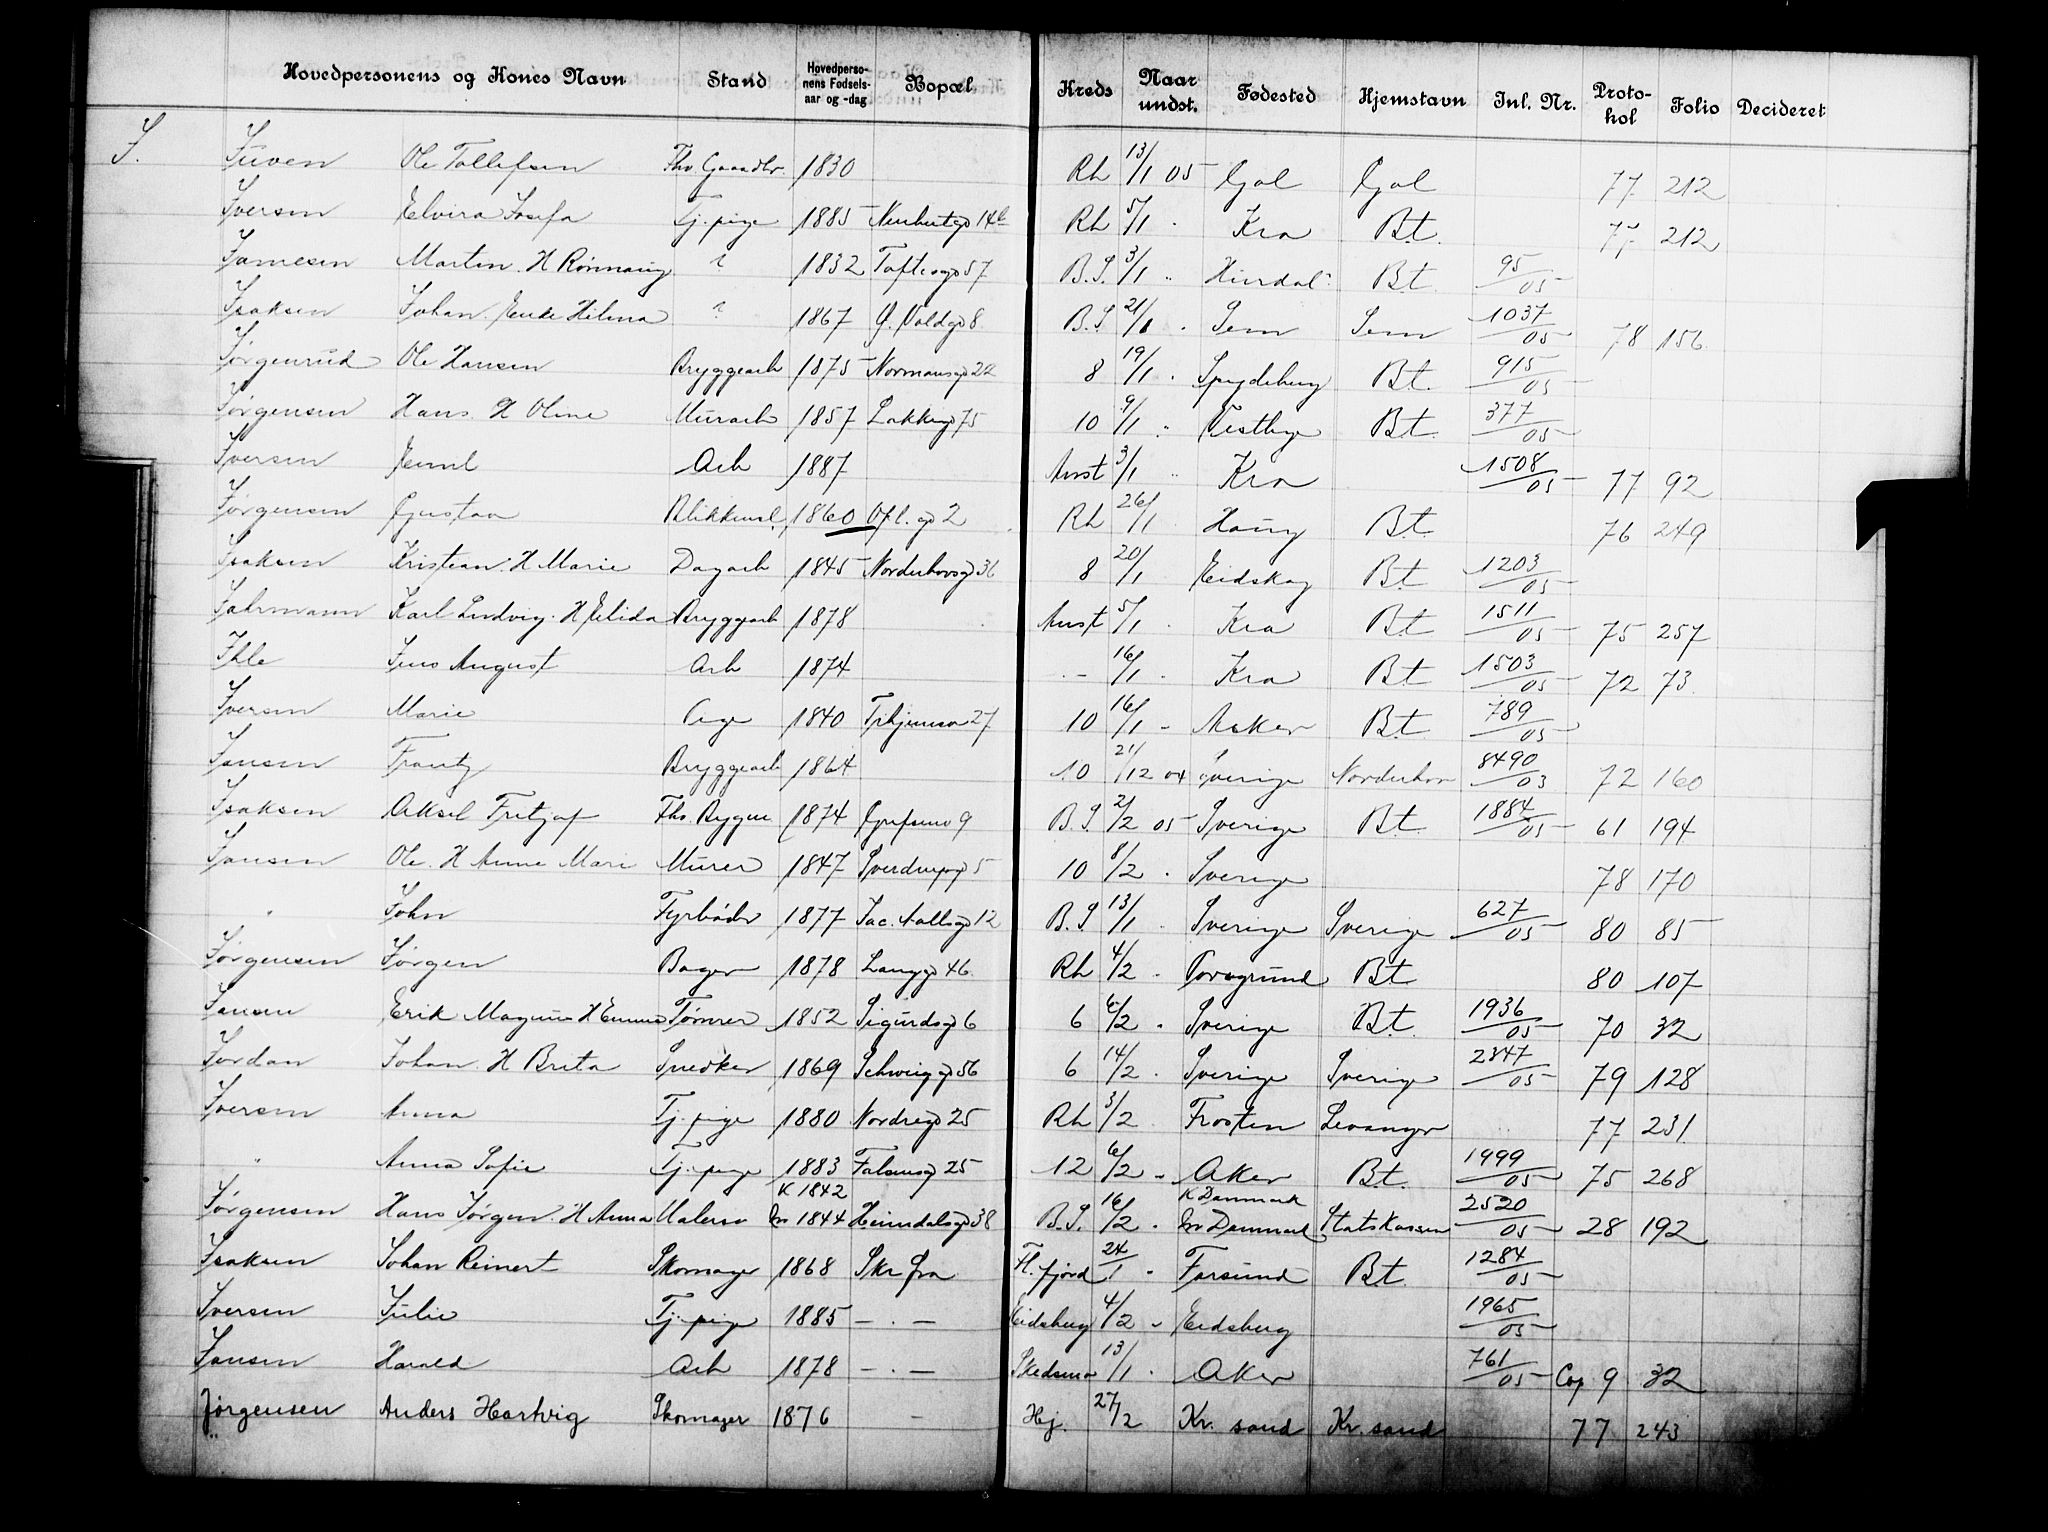 Hovedpersonens og Kones Navn Stand Hovedperso-nens Fødsels-aar og -dag Bopæl Kreds Naar undst. Fødested Hjemstavn Inl. Nr. Proto-kol Folio Decideret
J. Juven Ole Tollefsen Fhv. Gaardbr. 1830 Rh 13/1 05 Gol Gol 77 212
Iversen Elvira Josefa Tj. pige 1885 14b Rh 5/1 " Kra Bt. 77 212
Jamesen Martin. H Rønnaug ? 1832 Toftesgd 57 B.S. 3/1 " Hurdal Bt. 95/05
Isaksen Johan. Enke Hilma ? 1867 G. Voldgd 8 B.S 21/1 " Sem Sem 1037/05 78 156
Jørgenrud Ole Hansen Bryggearb 1875 Normansgd 22 8 19/1 " Spydeberg Bt. 915/05
Jørgensen Hans. H Oline Murarb 1857 Lakkegd 75 10 9/1 " Vestbye Bt. 377/05
Iversen Emil Arb 1887 Anst 3/1 " Kra 1508/05 77 92
Jørgensen Gustav Blikkensl. 1860 2 Rh 26/1 Haug Bt. 76 249
Isaksen Kristian. H Marie Dagarb 1845 Norderhovsgd 36 8 20/1 Eidskog Bt 1203/05
Jahrmann Karl Ludvig. H Elida Bryggearb 1878 Anst 5/1 " Kra Bt 1511/05 75 257
Ihle Jens August Arb 1874 - " - 16/1 " Kra Bt 1503/05 72 73
Iversen Marie 1840 Tr.hjemsv 27 10 16/1 - Asker Bt. 789/05
Jansen Frantz Bryggearb 1864 10 21/12 04 Sverige Norderhov 8490/03 72 160
Isaksen Aksel Fritjof Fhv. Bryggm 1874 Grefsenv 9 B.S. 2/2 05 Sverige Bt 1884/05 61 194
Jansen Ole. H Anne Mari Murer 1847 Sverdrupgd 5 10 8/2 " Sverige 78 170
" John Fyrbøder 1877 Jac. Aallsgd 12 B.S 13/1 " Sverige Sverige 627/05 80 85
Jørgensen Jørgen Bager 1878 Langgd 46 Rh 4/2 - Porsgrund Bt 80 107
Jansen Erik Magnus H Emma Tømrer 1852 Sigurdsgd 6 6 6/2 " Sverige Bt. 1936/05 70 32
Jordan Johan. H Brita Snedker 1869 Schweiggd 56 6 14/2 " Sverige Sverige 2347/05 79 128
Iversen Anna Tj. pige 1880 Nordregd 25 Rh 3/2 " Frosten Levanger 77 231
" Anna Sofie Tj. pige 1883 Falsensgd 25 12 6/2 - Aker Bt. 1999/05 75 268
Jørgensen Hans Jørgen. H Anna Malersv K 1842 M 1844 Heimdalsgd 38 B.S. 16/2 - K Danmark M Danmark Statskassen 2520/05 28 192
Isaksen Johan Reinert Skomager 1868 Skr fra Fl. fjord 24/1 - Farsund Bt. 1284/05
Iversen Julie Tj. pige 1885 - " - Eidsberg 4/2 - Eidsberg 1965/05
Jansen Harald Arb 1878 - " - Skedsmo 13/1 " Aker 761/05 Cop 9 32
Jørgensen Anders Hartvig Skomager 1876 - Hej. 27/2 Kr. sand Kr. sand 77 243